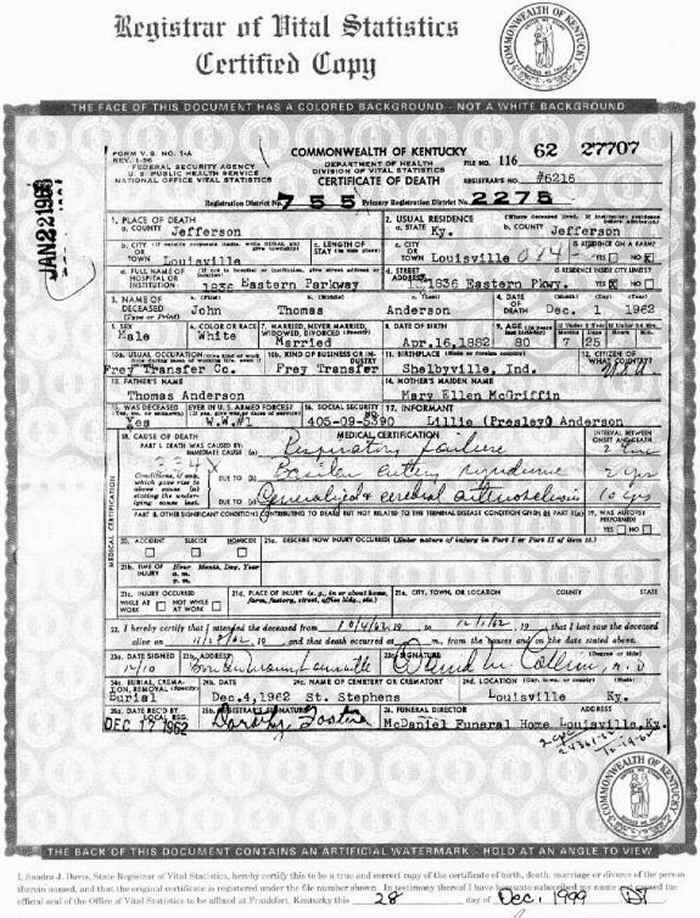 Registrar of Vital Statistics
Certified Copy
COMMONWEALTH OF KENTUCKY
THE FACE OF THIS DOCUMENT HAS A COLORED BACKGROUND - NOT A WHITE BACKGROUND
FORM V. S. NO. 1-A
REV. 1-56
FEDERAL SECURITY AGENCY
U. S. PUBLIC HEALTH SERVICE
NATIONAL OFFICE VITAL STATISTICS
COMMONWEALTH OF KENTUCKY
DEPARTMENT OF HEALTH
DIVISION OF VITAL STATISTICS
CERTIFICATE OF DEATH
FILE NO. 116 62 27707
REGISTRAR'S NO. #6216
Registration District No. 755 Primary Registration District No. 2275
1. PLACE OF DEATH
a. COUNTY Jefferson
2. USUAL RESIDENCE
a. STATE Ky. b. COUNTY Jefferson
b. CITY OR TOWN Louisville
c. LENGTH OF STAY
c. CITY OR TOWN Louisville
IS RESIDENCE ON A FARM?
YES NO
d. FULL NAME OF HOSPITAL OR INSTITUTION 1836 Eastern Parkway
d. STREET ADDRESS 1836 Eastern Pkwy.
IS RESIDENCE INSIDE CITY LIMITS?
YES NO
3. NAME OF DECEASED (Type or Print)
a. (First) b. (Middle) c. (Last)
John Thomas Anderson
4. DATE OF DEATH (Month) (Day) (Year)
Dec. 1 1962
5. SEX Male
6. COLOR OR RACE White
7. MARRIED, NEVER MARRIED, WIDOWED, DIVORCED Married
8. DATE OF BIRTH Apr.16,1882
9. AGE 80 7 25
10a. USUAL OCCUPATION
Frey Transfer Co.
10b. KIND OF BUSINESS OR INDUSTRY
Frey Transfer
11. BIRTHPLACE (State or foreign country)
Shelbyville, Ind.
12. CITIZEN OF WHAT COUNTRY?
USA
13. FATHER'S NAME
Thomas Anderson
14. MOTHER'S MAIDEN NAME
Mary Ellen McGriffin
15. WAS DECEASED EVER IN U. S. ARMED FORCES?
Yes W.W#1
16. SOCIAL SECURITY NO.
405-09-5390
17. INFORMANT
Lillie (Presley) Anderson
18. CAUSE OF DEATH
MEDICAL CERTIFICATION
INTERVAL BETWEEN ONSET AND DEATH
PART I. DEATH WAS CAUSED BY:
IMMEDIATE CAUSE (a) Respiratory failure
Conditions, if any, which gave rise to above cause (a) stating the underlying cause last.
DUE TO (b) Basilar artery syndrome 2 yrs
DUE TO (c) Generalized & cerebral arteriosclerosis 10 yrs
PART II. OTHER SIGNIFICANT CONDITIONS CONTRIBUTING TO DEATH BUT NOT RELATED TO THE TERMINAL DISEASE CONDITION GIVEN IN PART I(a)
19. WAS AUTOPSY PERFORMED?
YES NO
MEDICAL CERTIFICATION
20. ACCIDENT SUICIDE HOMICIDE
21a. DESCRIBE HOW INJURY OCCURRED (Enter nature of injury in Part I or Part II of item 18.)
21b. TIME OF INJURY Hour a. m. p. m. Month, Day, Year
21c. INJURY OCCURRED
WHILE AT WORK NOT WHILE AT WORK
21d. PLACE OF INJURY (e.g., in or about home, farm, factory, street, office bldg., etc.)
21e. CITY, TOWN, OR LOCATION COUNTY STATE
22. I hereby certify that I attended the deceased from 10/4/62, 19 to 12/1/62, 19 that I last saw the deceased
alive on 11/28/62, 19 and that death occurred at m., from the causes and on the date stated above.
23a. DATE SIGNED 12/10
23b. ADDRESS
23c. SIGNATURE (Degree or title)
M.D
24a. BURIAL, CREMATION, REMOVAL
Burial
24b. DATE
Dec.4,1962
24c. NAME OF CEMETERY OR CREMATORY
St. Stephens
24d. LOCATION (City, town, or county) (State)
Louisville Ky.
25a. DATE REC'D BY LOCAL REG.
DEC 17 1962
25b. REGISTRAR'S SIGNATURE
Dorothy
26. FUNERAL DIRECTOR ADDRESS
McDaniel Funeral Home Louisville, Ky.
COMMONWEALTH OF KENTUCKY
THE BACK OF THIS DOCUMENT CONTAINS AN ARTIFICIAL WATERMARK - HOLD AT AN ANGLE TO VIEW
I, Sandra J. Davis, State Registrar of Vital Statistics, hereby certify this to be a true and correct copy of the certificate of birth, death, marriage or divorce of the person
therein named, and that the original certificate is registered under the file number shown. In testimony thereof I have hereunto subscribed my name and caused the
official seal of the Office of Vital Statistics to be affixed at Frankfort, Kentucky this 28 day of Dec. 1999